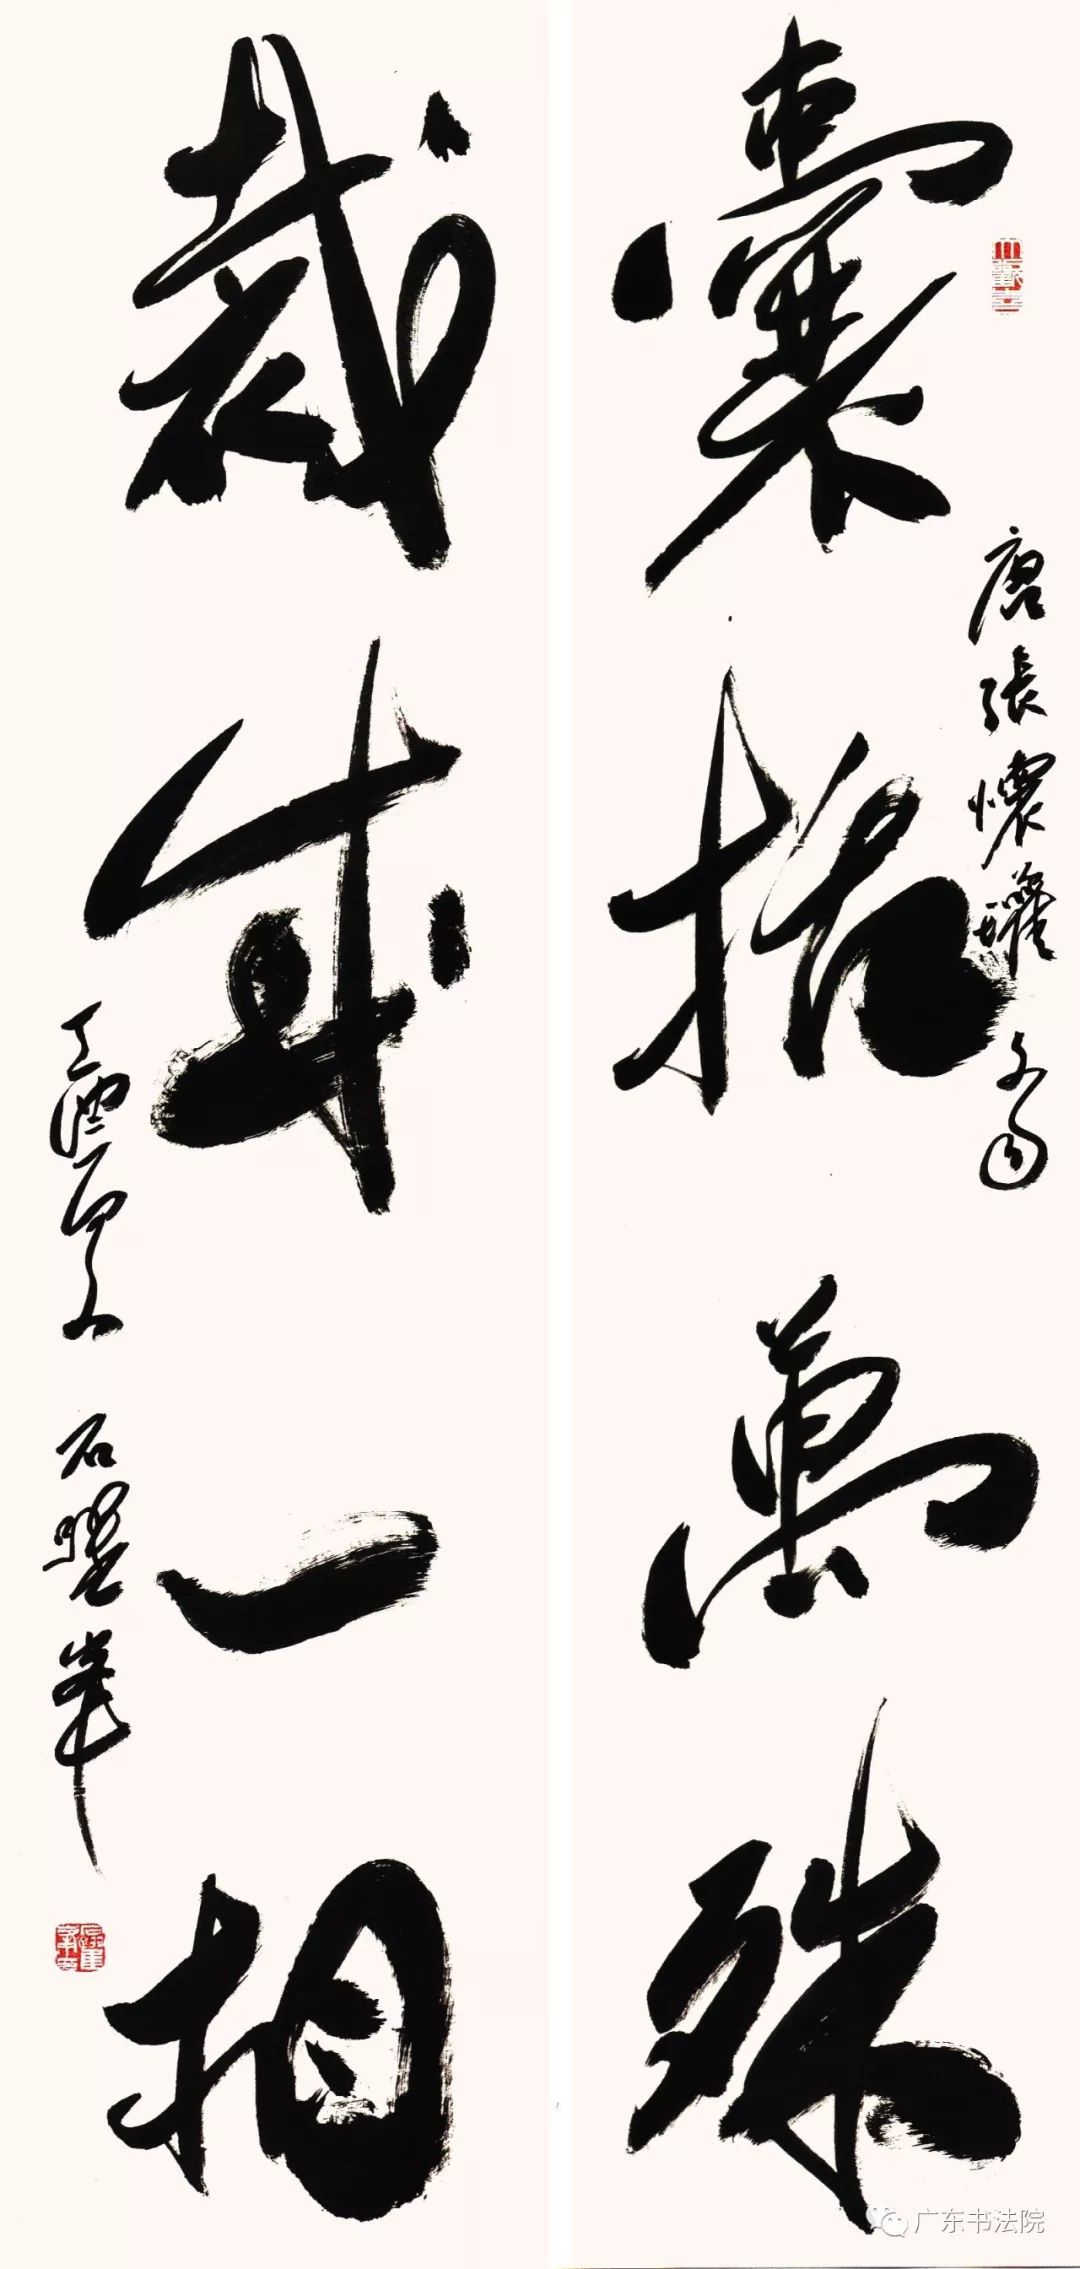 囊括萬殊
唐張懷瓘文句
裁成一相
丁酉夏
石躍峯
广东书法院